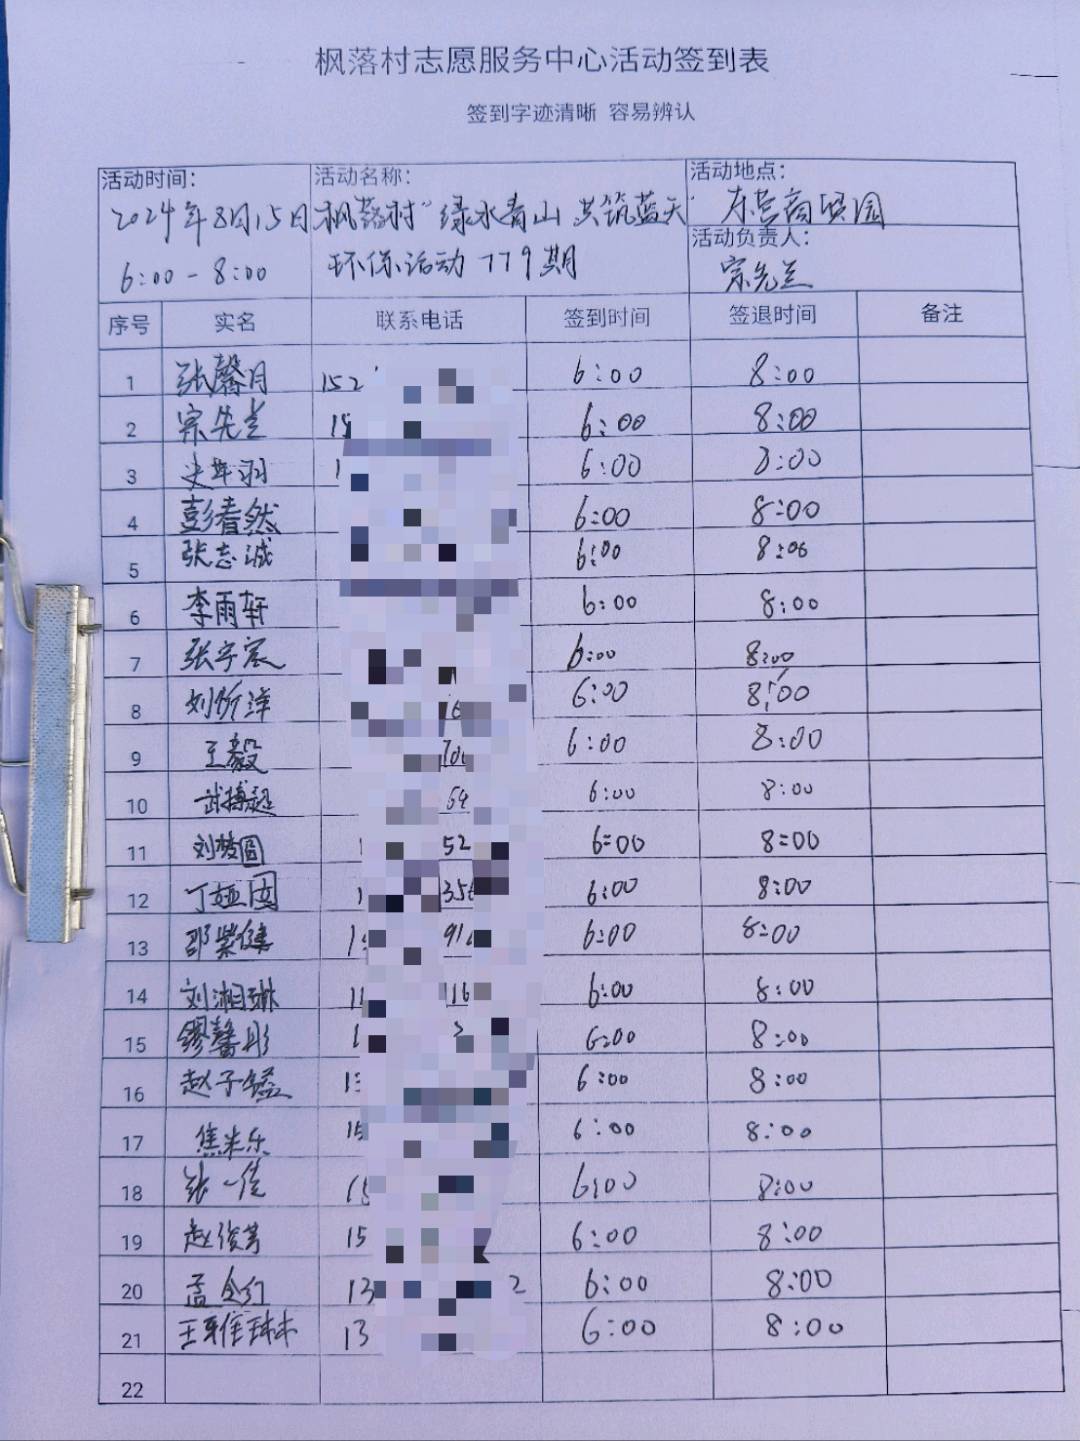 枫落村志愿服务中心活动签到表
签到字迹清晰 容易辨认
活动时间： 活动名称： 活动地点：
2024年8月15日 枫落村"绿水青山 共筑蓝天" 东营商贸园
活动负责人：
6:00-8:00 环保活动 779期 宗先兰
序号 实名 联系电话 签到时间 签退时间 备注
1 张馨月 152 6:00 8:00
2 宗先兰 15 6:00 8:00
3 史羽 1 6:00 8:00
4 彭春然 6:00 8:00
5 张志诚 6:00 8:00
6 李雨轩 6:00 8:00
7 张宇宸 6:00 8:00
8 刘洋 6:00 8:00
9 王毅 6:00 8:00
10 武搏超 64 6:00 8:00
11 刘梦圆 52 6:00 8:00
12 丁娅囡 356 6:00 8:00
13 邵紫健 91 6:00 8:00
14 刘湘琳 116 6:00 8:00
15 缪馨彤 6:00 8:00
16 赵子溢 13 6:00 8:00
17 焦米乐 15 6:00 8:00
18 张一佳 6:00 8:00
19 赵俊芳 15 6:00 8:00
20 孟令红 13 2 6:00 8:00
21 王雅琳 13 6:00 8:00
22